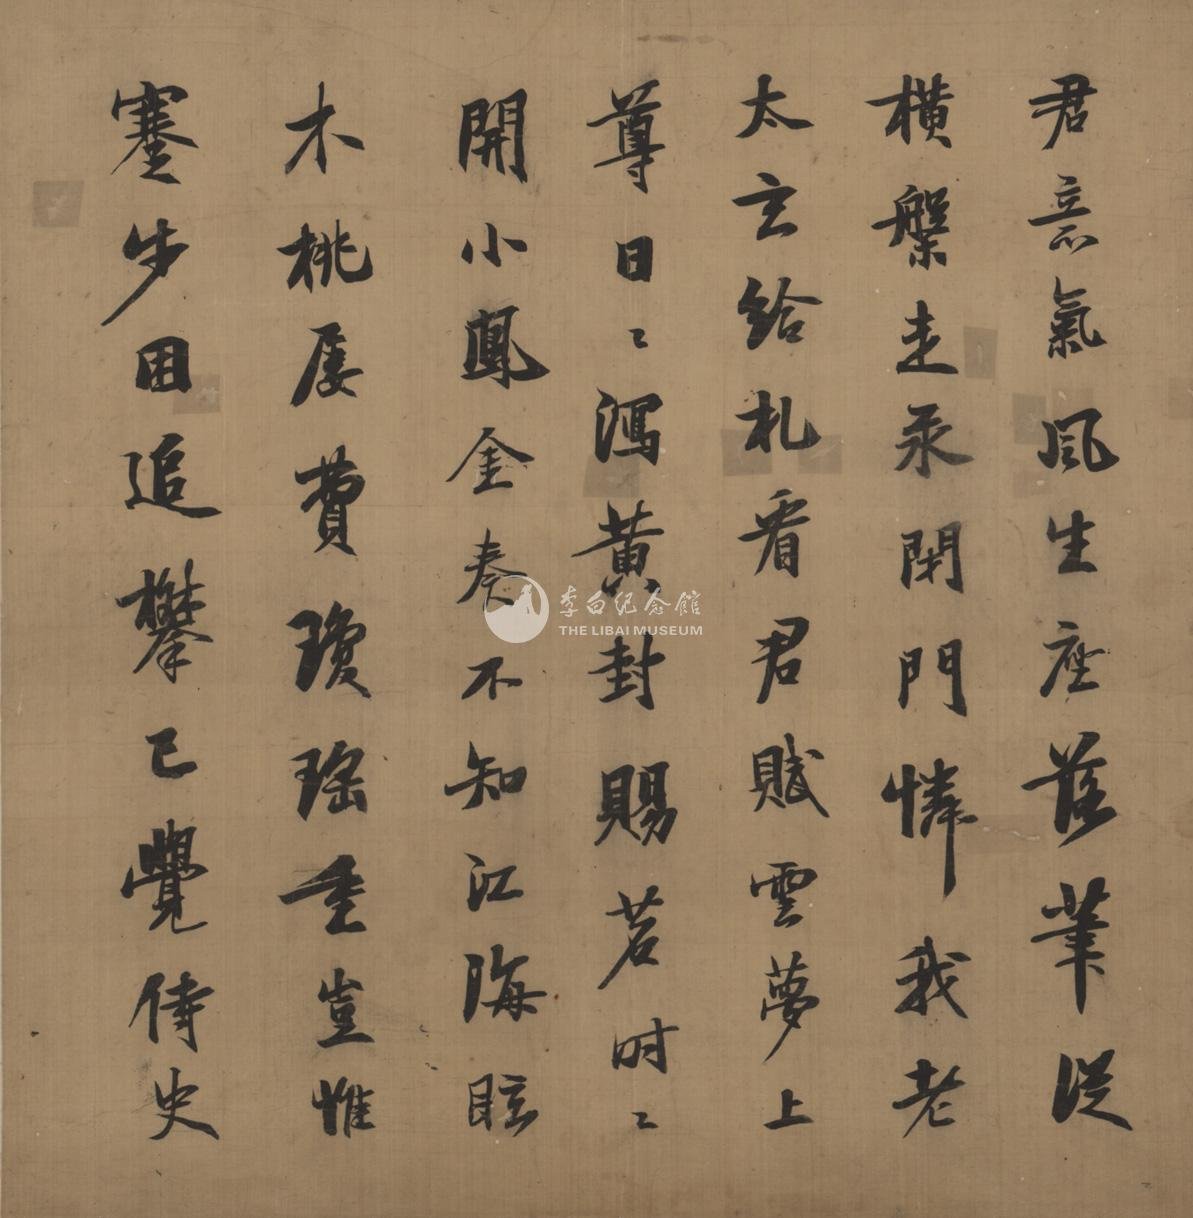 君意氣風生座落筆從
橫槃走汞閉門憐我老
太玄給札看君賦雲夢上
尊日〻瀉黃封賜茗時〻
開小鳳金奏不知江海眩
木桃屢費瓊瑤重豈惟
蹇步困追攀已覺侍史
李白纪念館
THE LIBAI MUSEUM